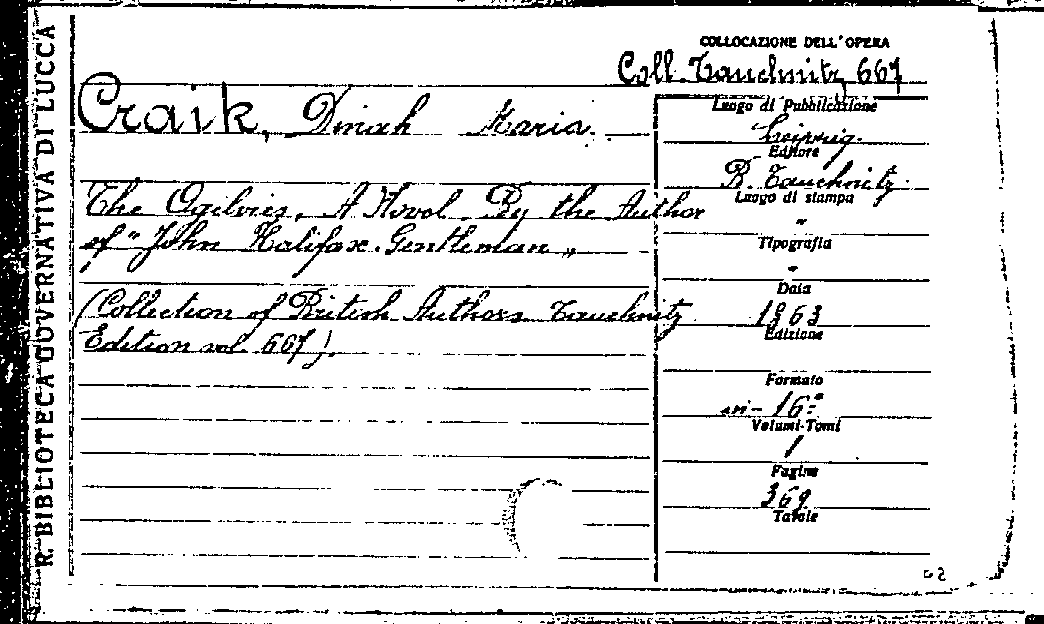 R. BIBLIOTECA GOVERNATIVA DI LUCCA
COLLOCAZIONE DELL'OPERA
Coll. Tauchnitz 667
Craik, Dinah Maria.
The Ogilvies. A Novel. By the Author
of "John Halifax. Gentleman"
(Collection of British Authors Tauchnitz
Edition vol. 667).
Luogo di Pubblicazione
Leipzig.
Editore
B. Tauchnitz.
Luogo di stampa
"
Tipografia
"
Data
1863
Edizione
Formato
in-16º
Volumi-Tomi
1
Pagine
369
Tavole